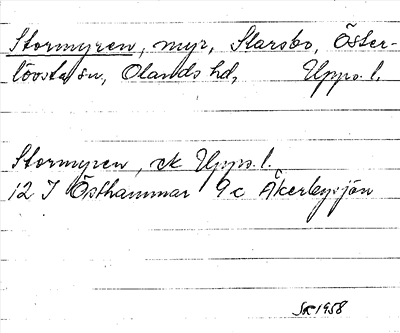 Stormyren, myr, Slarsbo, Öster-
lövsta sn, Olands hd, Upps. l.
Stormyren, ek Upps. l.
12 I Östhammar 9 c Åkerbysjön
SK 1958